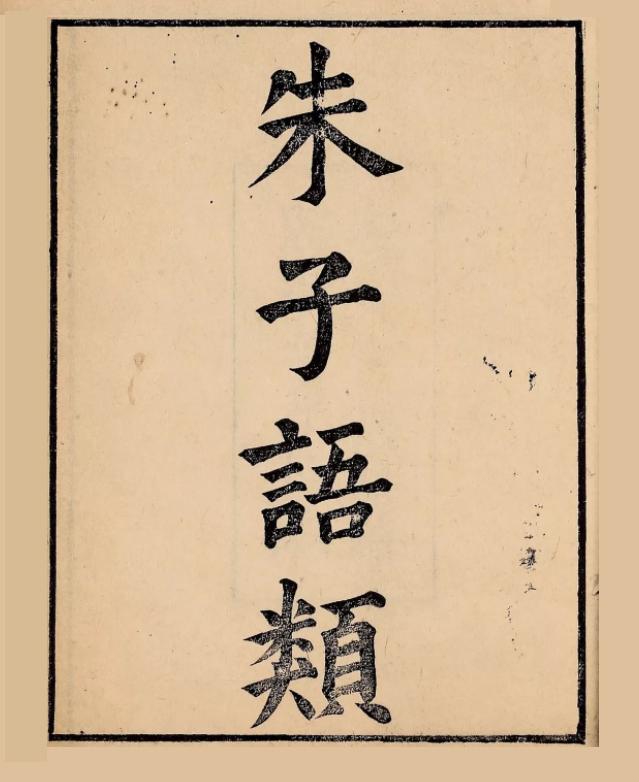 朱子語類